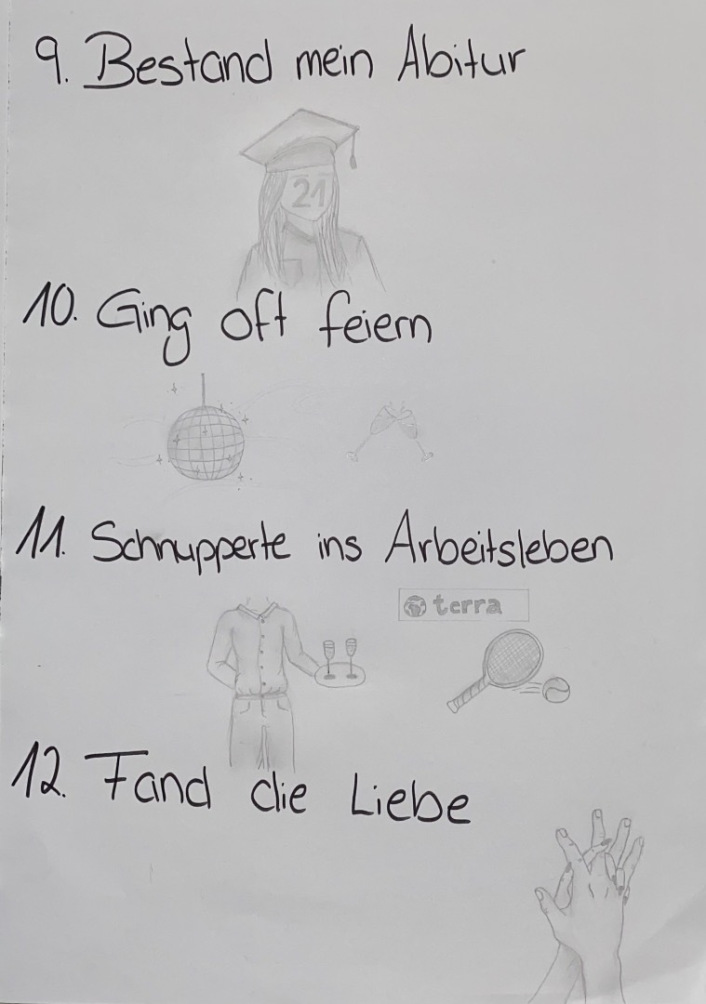 9. Bestand mein Abitur
21
10. Ging oft feiern
11. Schnupperte ins Arbeitsleben
terra
12. Fand die Liebe